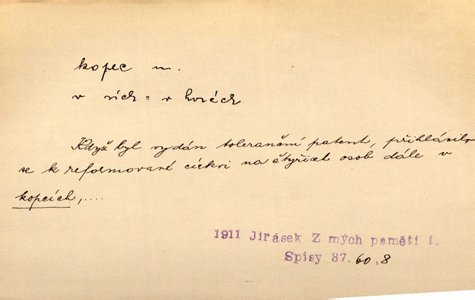 kopec m.
v nich = v horách
Když byl vydán toleranční patent, přihlásilo
se k reformované církvi na čtyřicet osob dále v
kopcích,....
1911 Jirásek Z mých pamětí I.
Spisy 37. 60.8